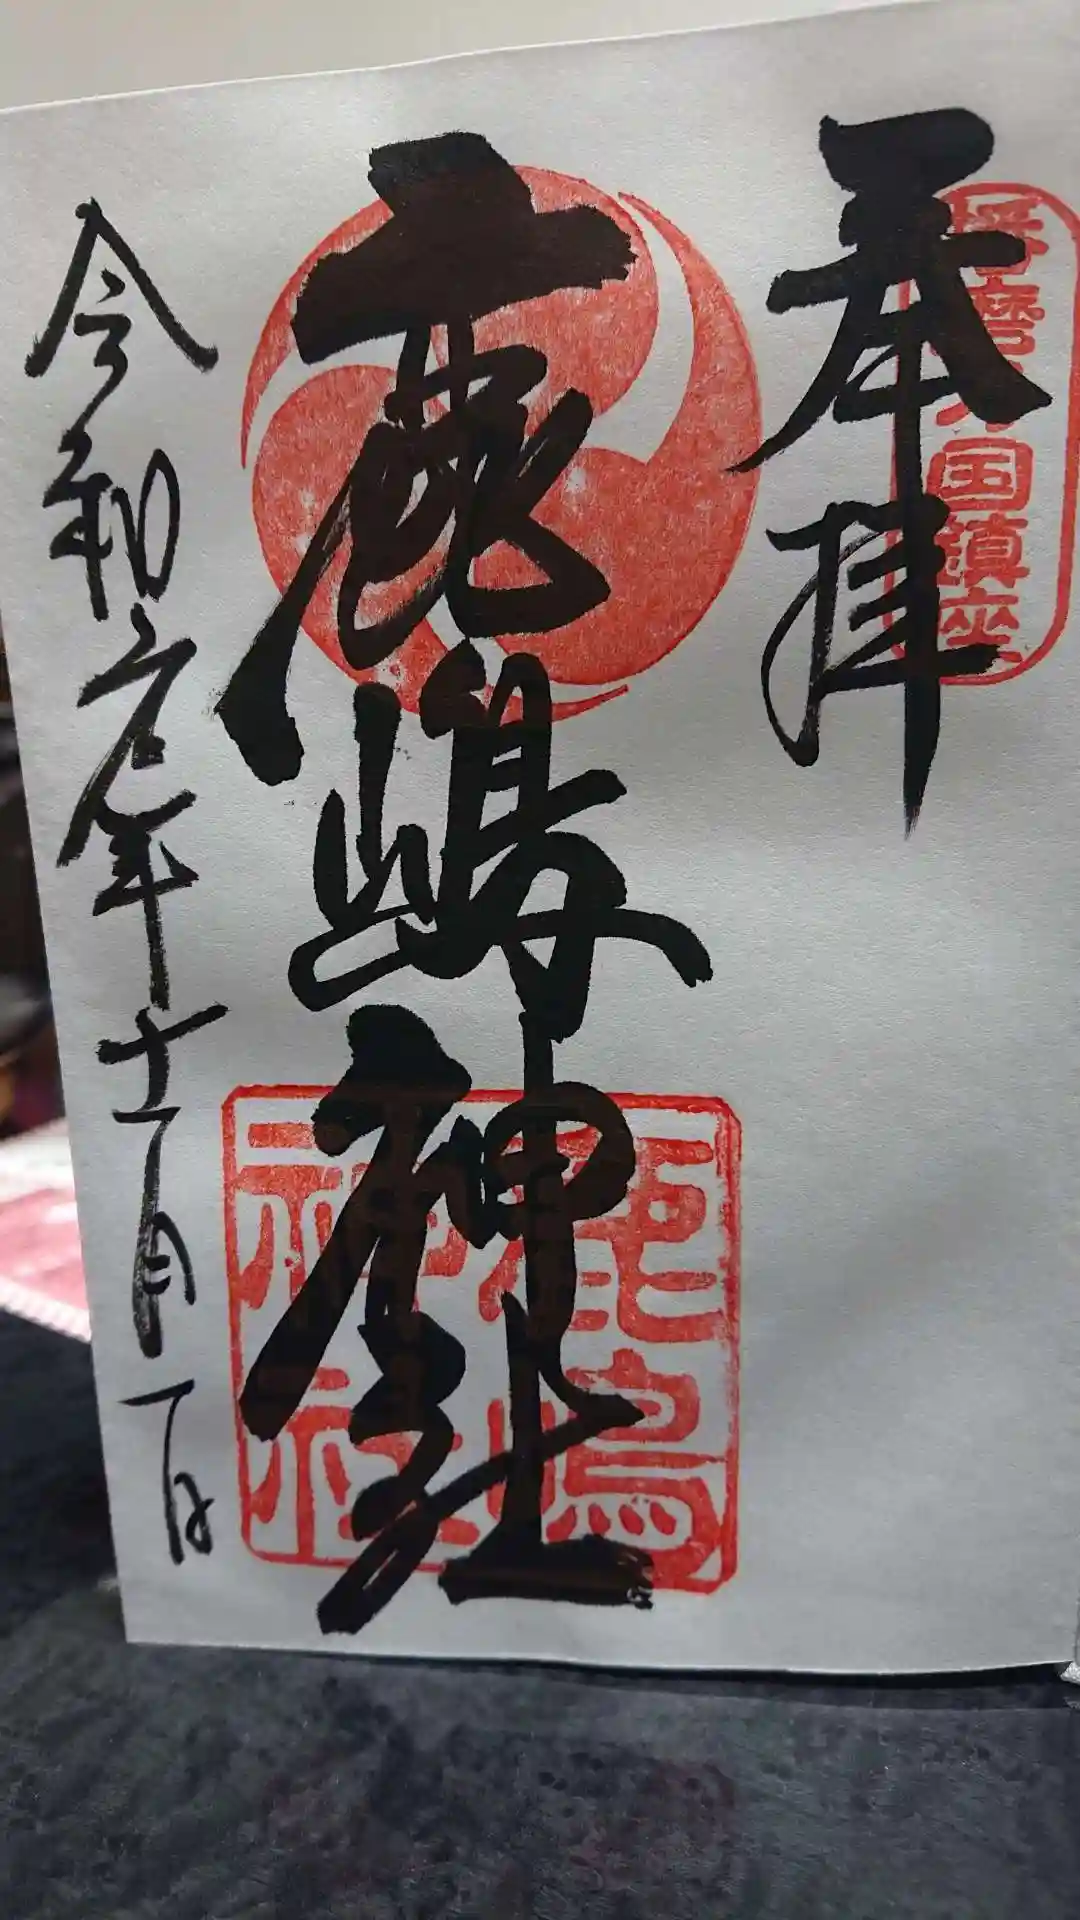 奉拝
播磨之国鎮座
鹿嶋神社
鹿嶋神社
令和元年十一月一日